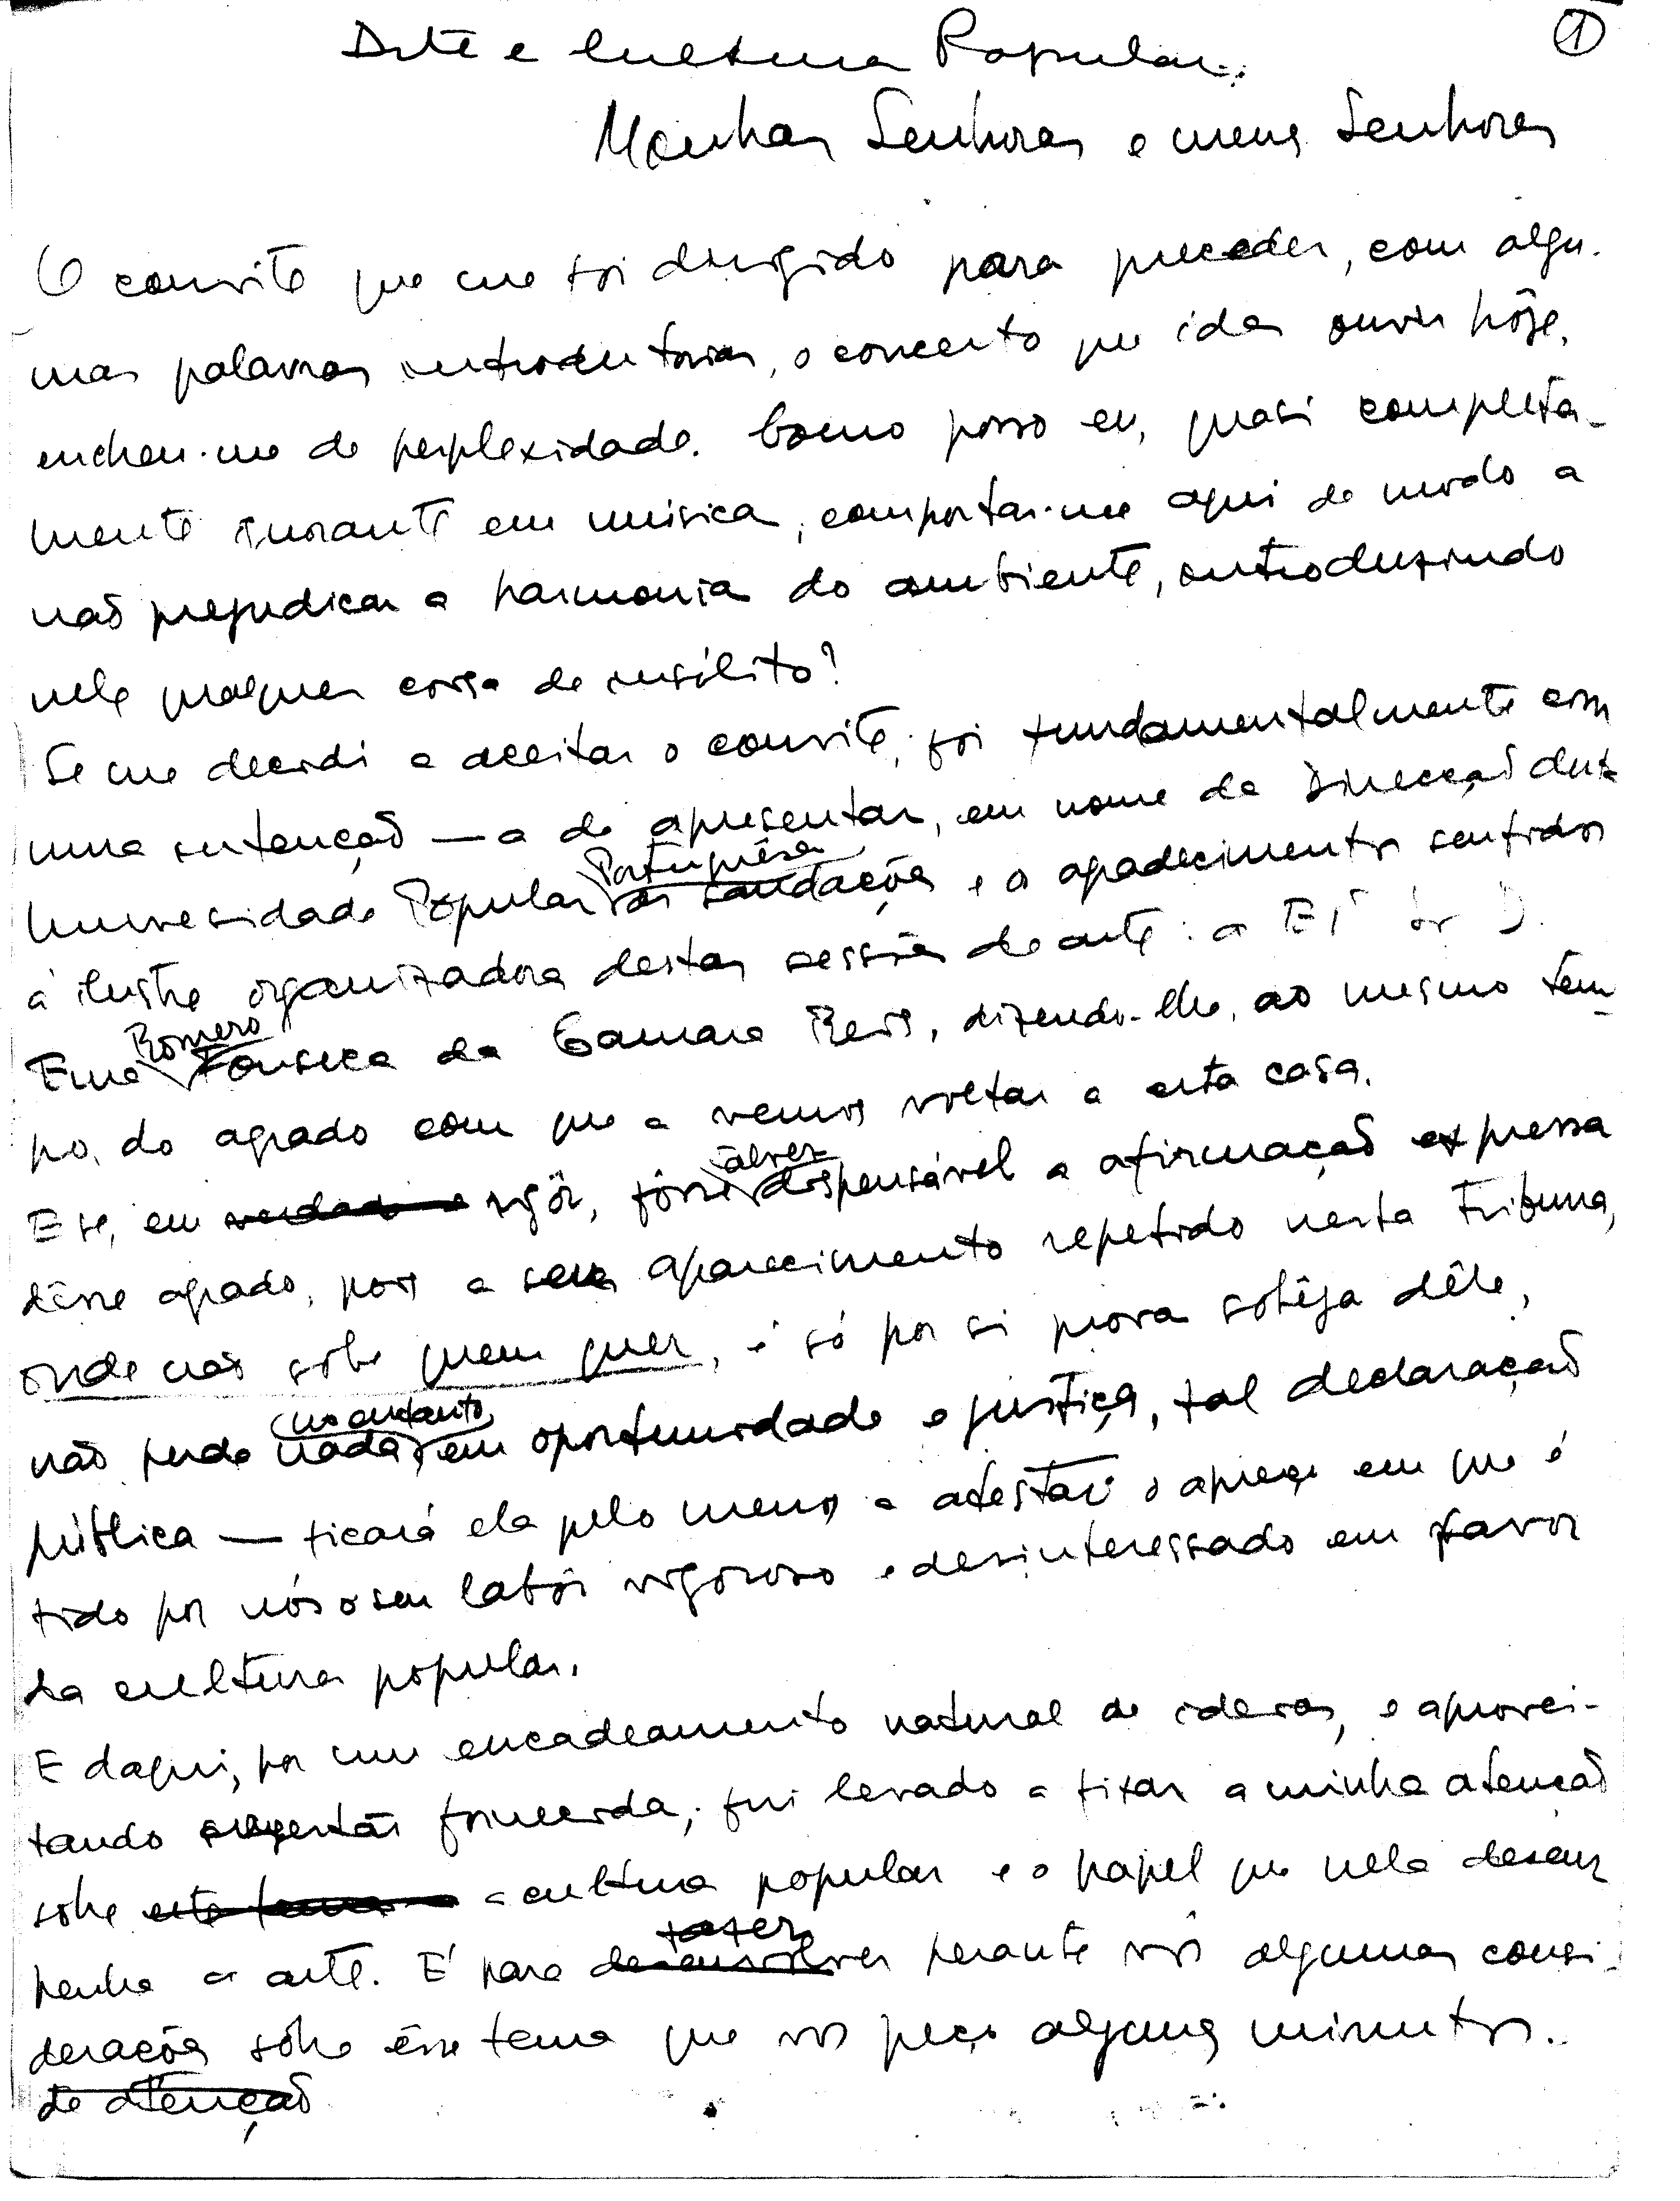 Arte e Cultura Popular.
①
Minhas Senhoras e meus Senhores
O convite que me foi dirigido para preceder, com algu-
mas palavras introdutorias, o concerto que ides ouvir hôje,
encheu-me de perplexidade. Como posso eu, quasi completa-
mente ignorante em musica, comportar-me aqui de modo a
não prejudicar a harmonia do ambiente, introduzindo
nele qualquer coisa de insólito?
Se me decidi a aceitar o convite, foi fundamentalmente com
uma intenção — a de apresentar, em nome da Direcção desta
Portuguêsa
Universidade Popular as saudações e o agradecimentos sentidos
á ilustre organizadora destas sessões de arte: a Ex
Romero
Ema Fonseca da Camara Reis, dizendo-lhe, ao mesmo tem-
po, do agrado com que a vemos voltar a esta casa.
talvez
E se, em verdade e rigôr, fôsse dispensável a afirmação expressa
dêsse agrado, pois o seu aparecimento repetido nesta Tribuna,
onde não sobe quem quer, é só por si prova sobeja dêle,
no entanto
não perde nada, em oportunidade e justiça, tal declaração
pública — ficará ela pelo menos a atestar o apreço em que é
tido por nós o seu labôr vigoroso e desinteressado em favor
da cultura popular.
E daqui, por um encadeamento natural de ideias, e aprovei-
tando sugestão fornecida, fui levado a fixar a minha atenção
sobre este tema a cultura popular e o papel que nela desem-
fazer
penha a arte. É para desenvolver perante vós algumas consi-
derações sôbre êsse tema que vos peço alguns minutos.
de atenção